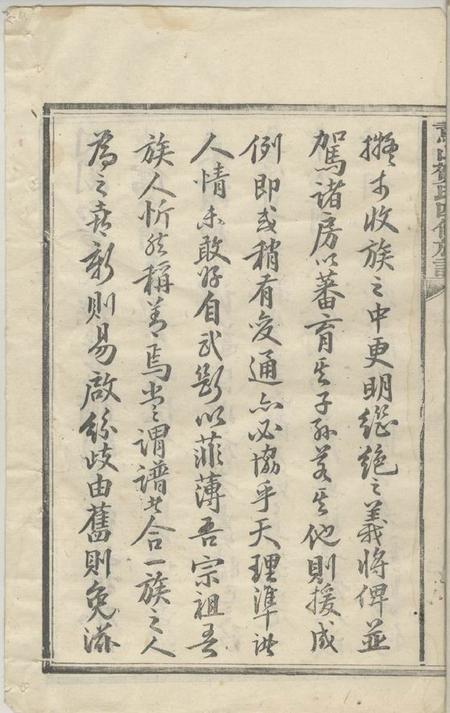 擬於收族之中更明繼絕之義將俾並
駕諸房以蕃育其子孫若其他則援成
例即或稍有變通亦必協乎天理準諸
人情未敢好自武斷以菲薄吾宗祖吾
族人忻然稱善焉嘗謂譜者合一族之人
為之喜新則易啟紛歧由舊則免滋